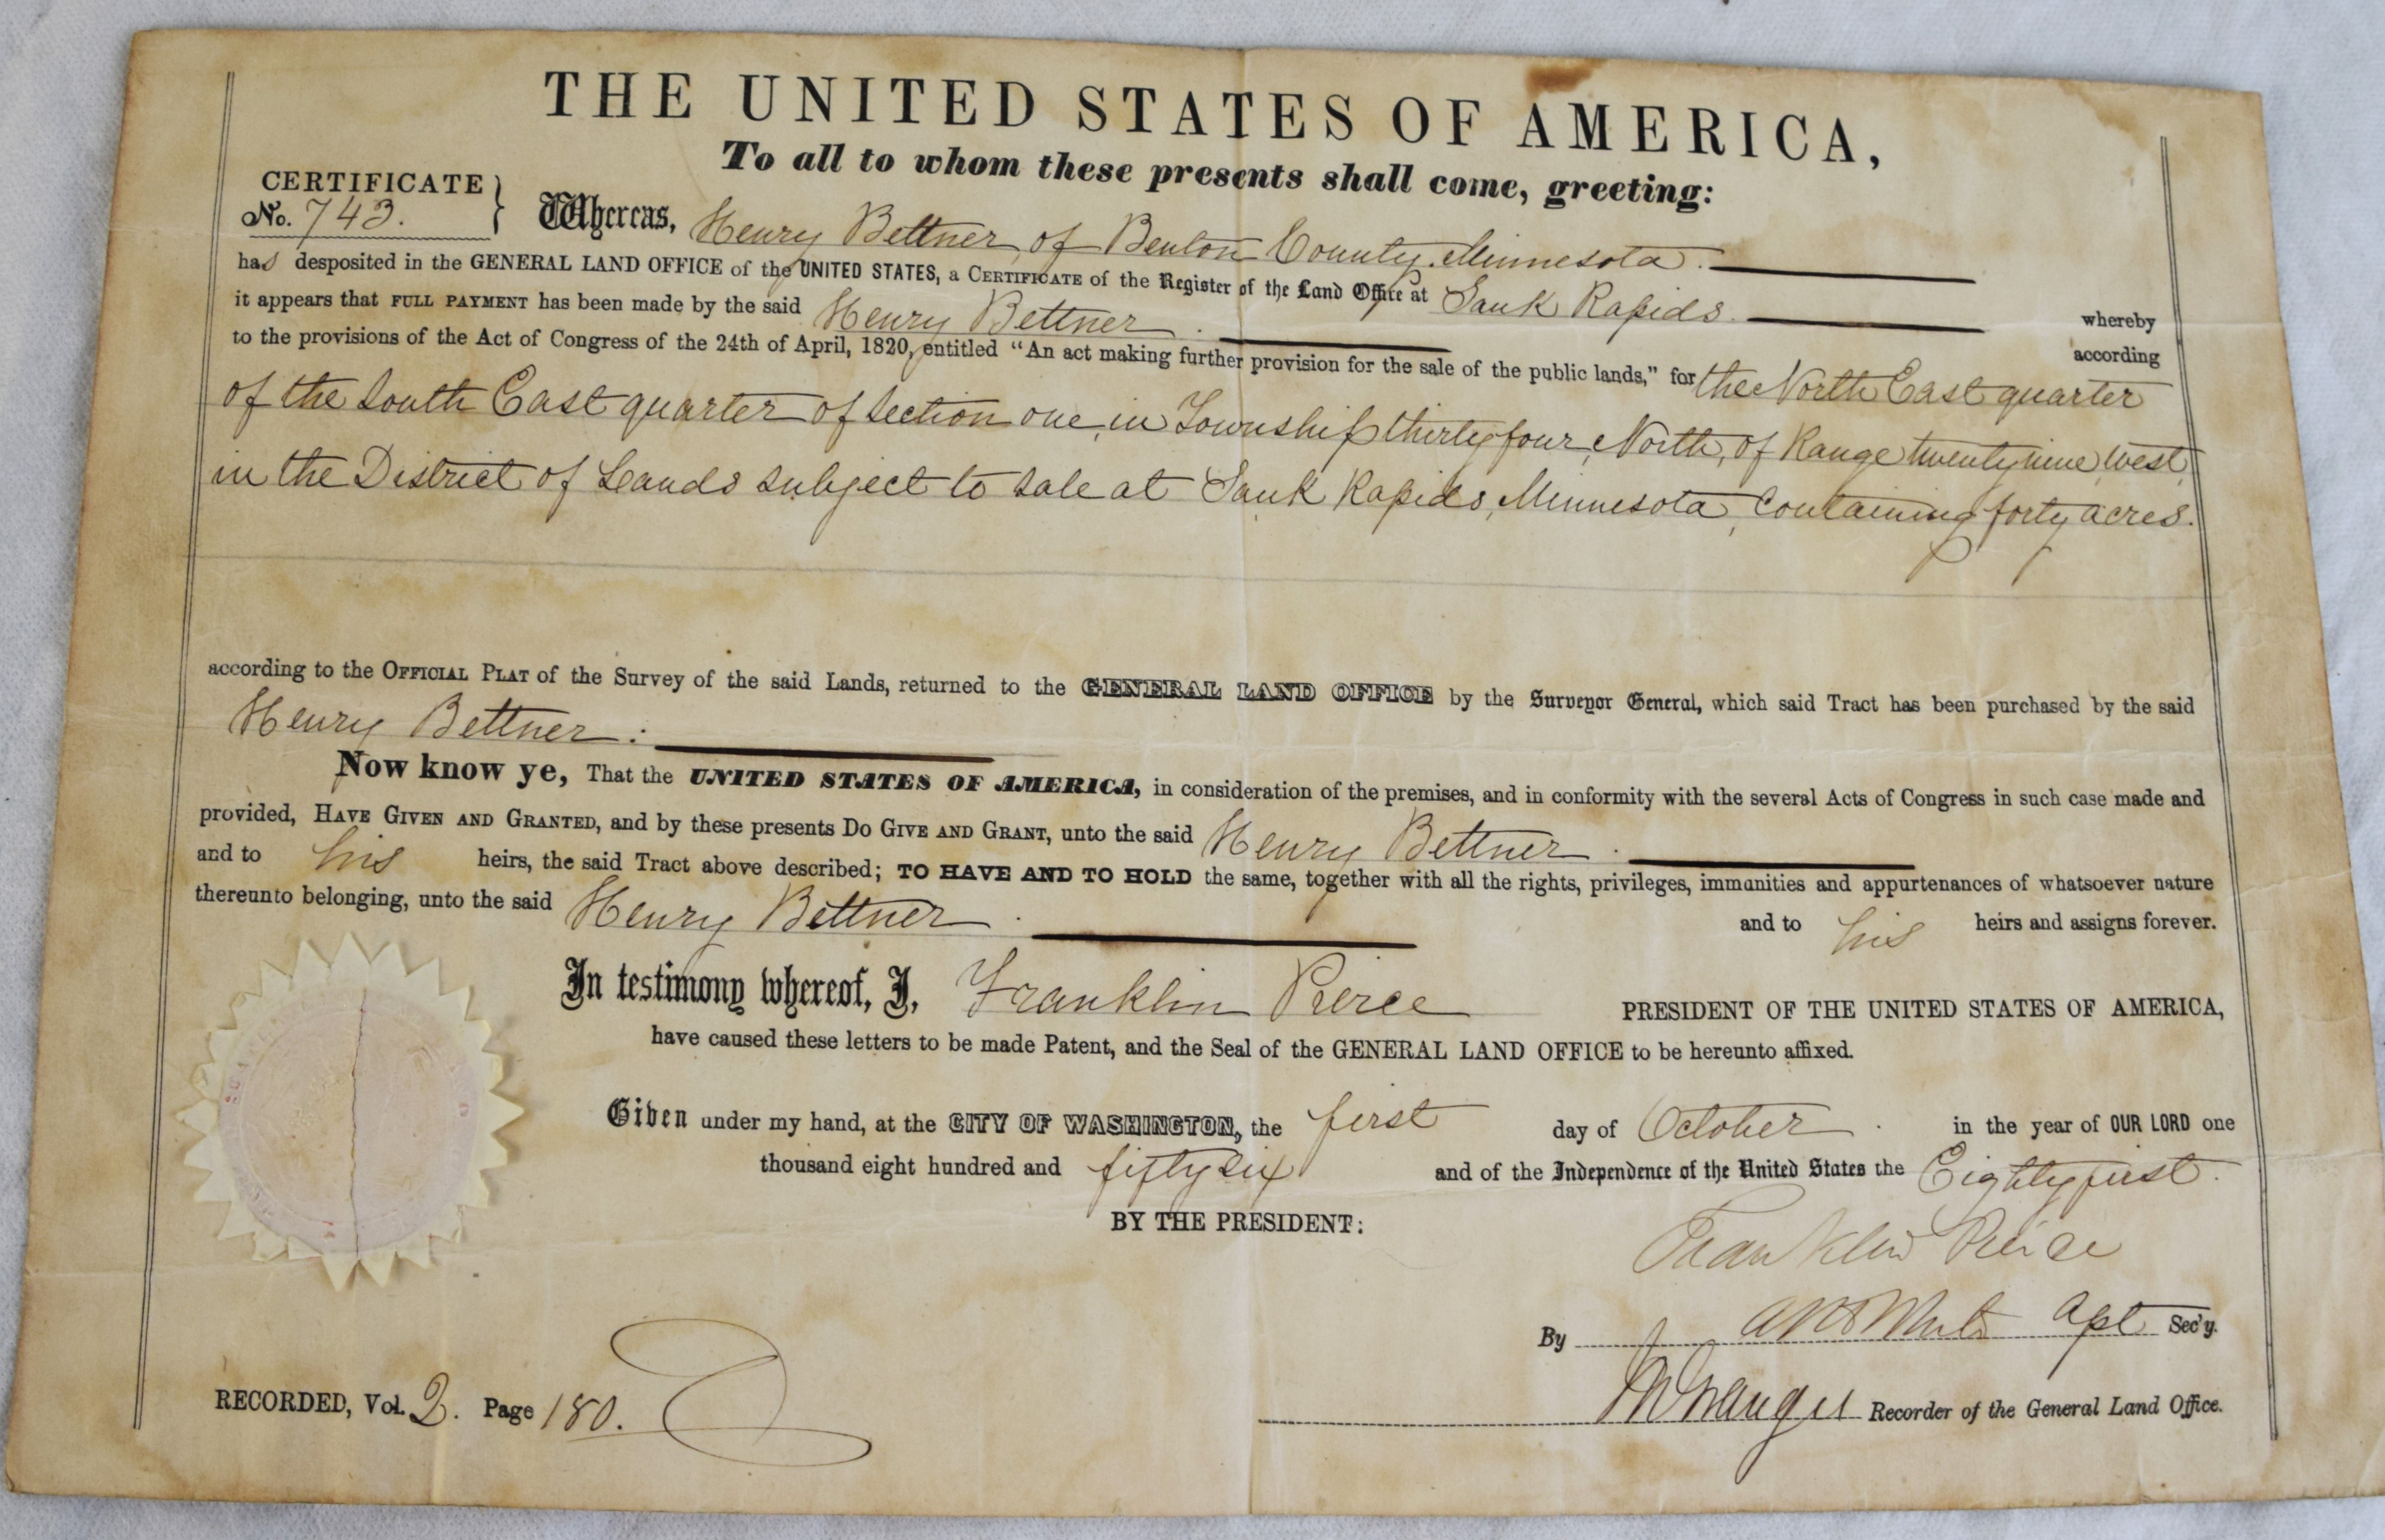 THE UNITED STATES OF AMERICA,
To all to whom these presents shall come, greeting:
CERTIFICATE
No. 743.
Whereas, Henry Bettner, of Benton County, Minnesota.
has desposited in the GENERAL LAND OFFICE of the UNITED STATES, a CERTIFICATE of the Register of the Land Office at Sauk Rapids. whereby
it appears that FULL PAYMENT has been made by the said Henry Bettner. according
to the provisions of the Act of Congress of the 24th of April, 1820, entitled “An act making further provision for the sale of the public lands,” for the North East quarter
of the South East quarter of Section one, in Township thirty four, North, of Range twenty nine, West,
in the District of Lands subject to sale at Sauk Rapids, Minnesota, Containing forty acres.
according to the OFFICIAL PLAT of the Survey of the said Lands, returned to the GENERAL LAND OFFICE by the Surveyor General, which said Tract has been purchased by the said
Henry Bettner:
Now know ye, That the UNITED STATES OF AMERICA, in consideration of the premises, and in conformity with the several Acts of Congress in such case made and
provided, HAVE GIVEN AND GRANTED, and by these presents DO GIVE AND GRANT, unto the said Henry Bettner.
and to his heirs, the said Tract above described; TO HAVE AND TO HOLD the same, together with all the rights, privileges, immunities and appurtenances of whatsoever nature
thereunto belonging, unto the said Henry Bettner. and to his heirs and assigns forever.
In testimony whereof, I, Franklin Pierce PRESIDENT OF THE UNITED STATES OF AMERICA,
have caused these letters to be made Patent, and the Seal of the GENERAL LAND OFFICE to be hereunto affixed.
Given under my hand, at the CITY OF WASHINGTON, the first day of October. in the year of OUR LORD one
thousand eight hundred and fifty six and of the Independence of the United States the Eighty first.
BY THE PRESIDENT:
Franklin Pierce
By Sec'y.
Recorder of the General Land Office.
RECORDED, Vol. 2. Page 180.